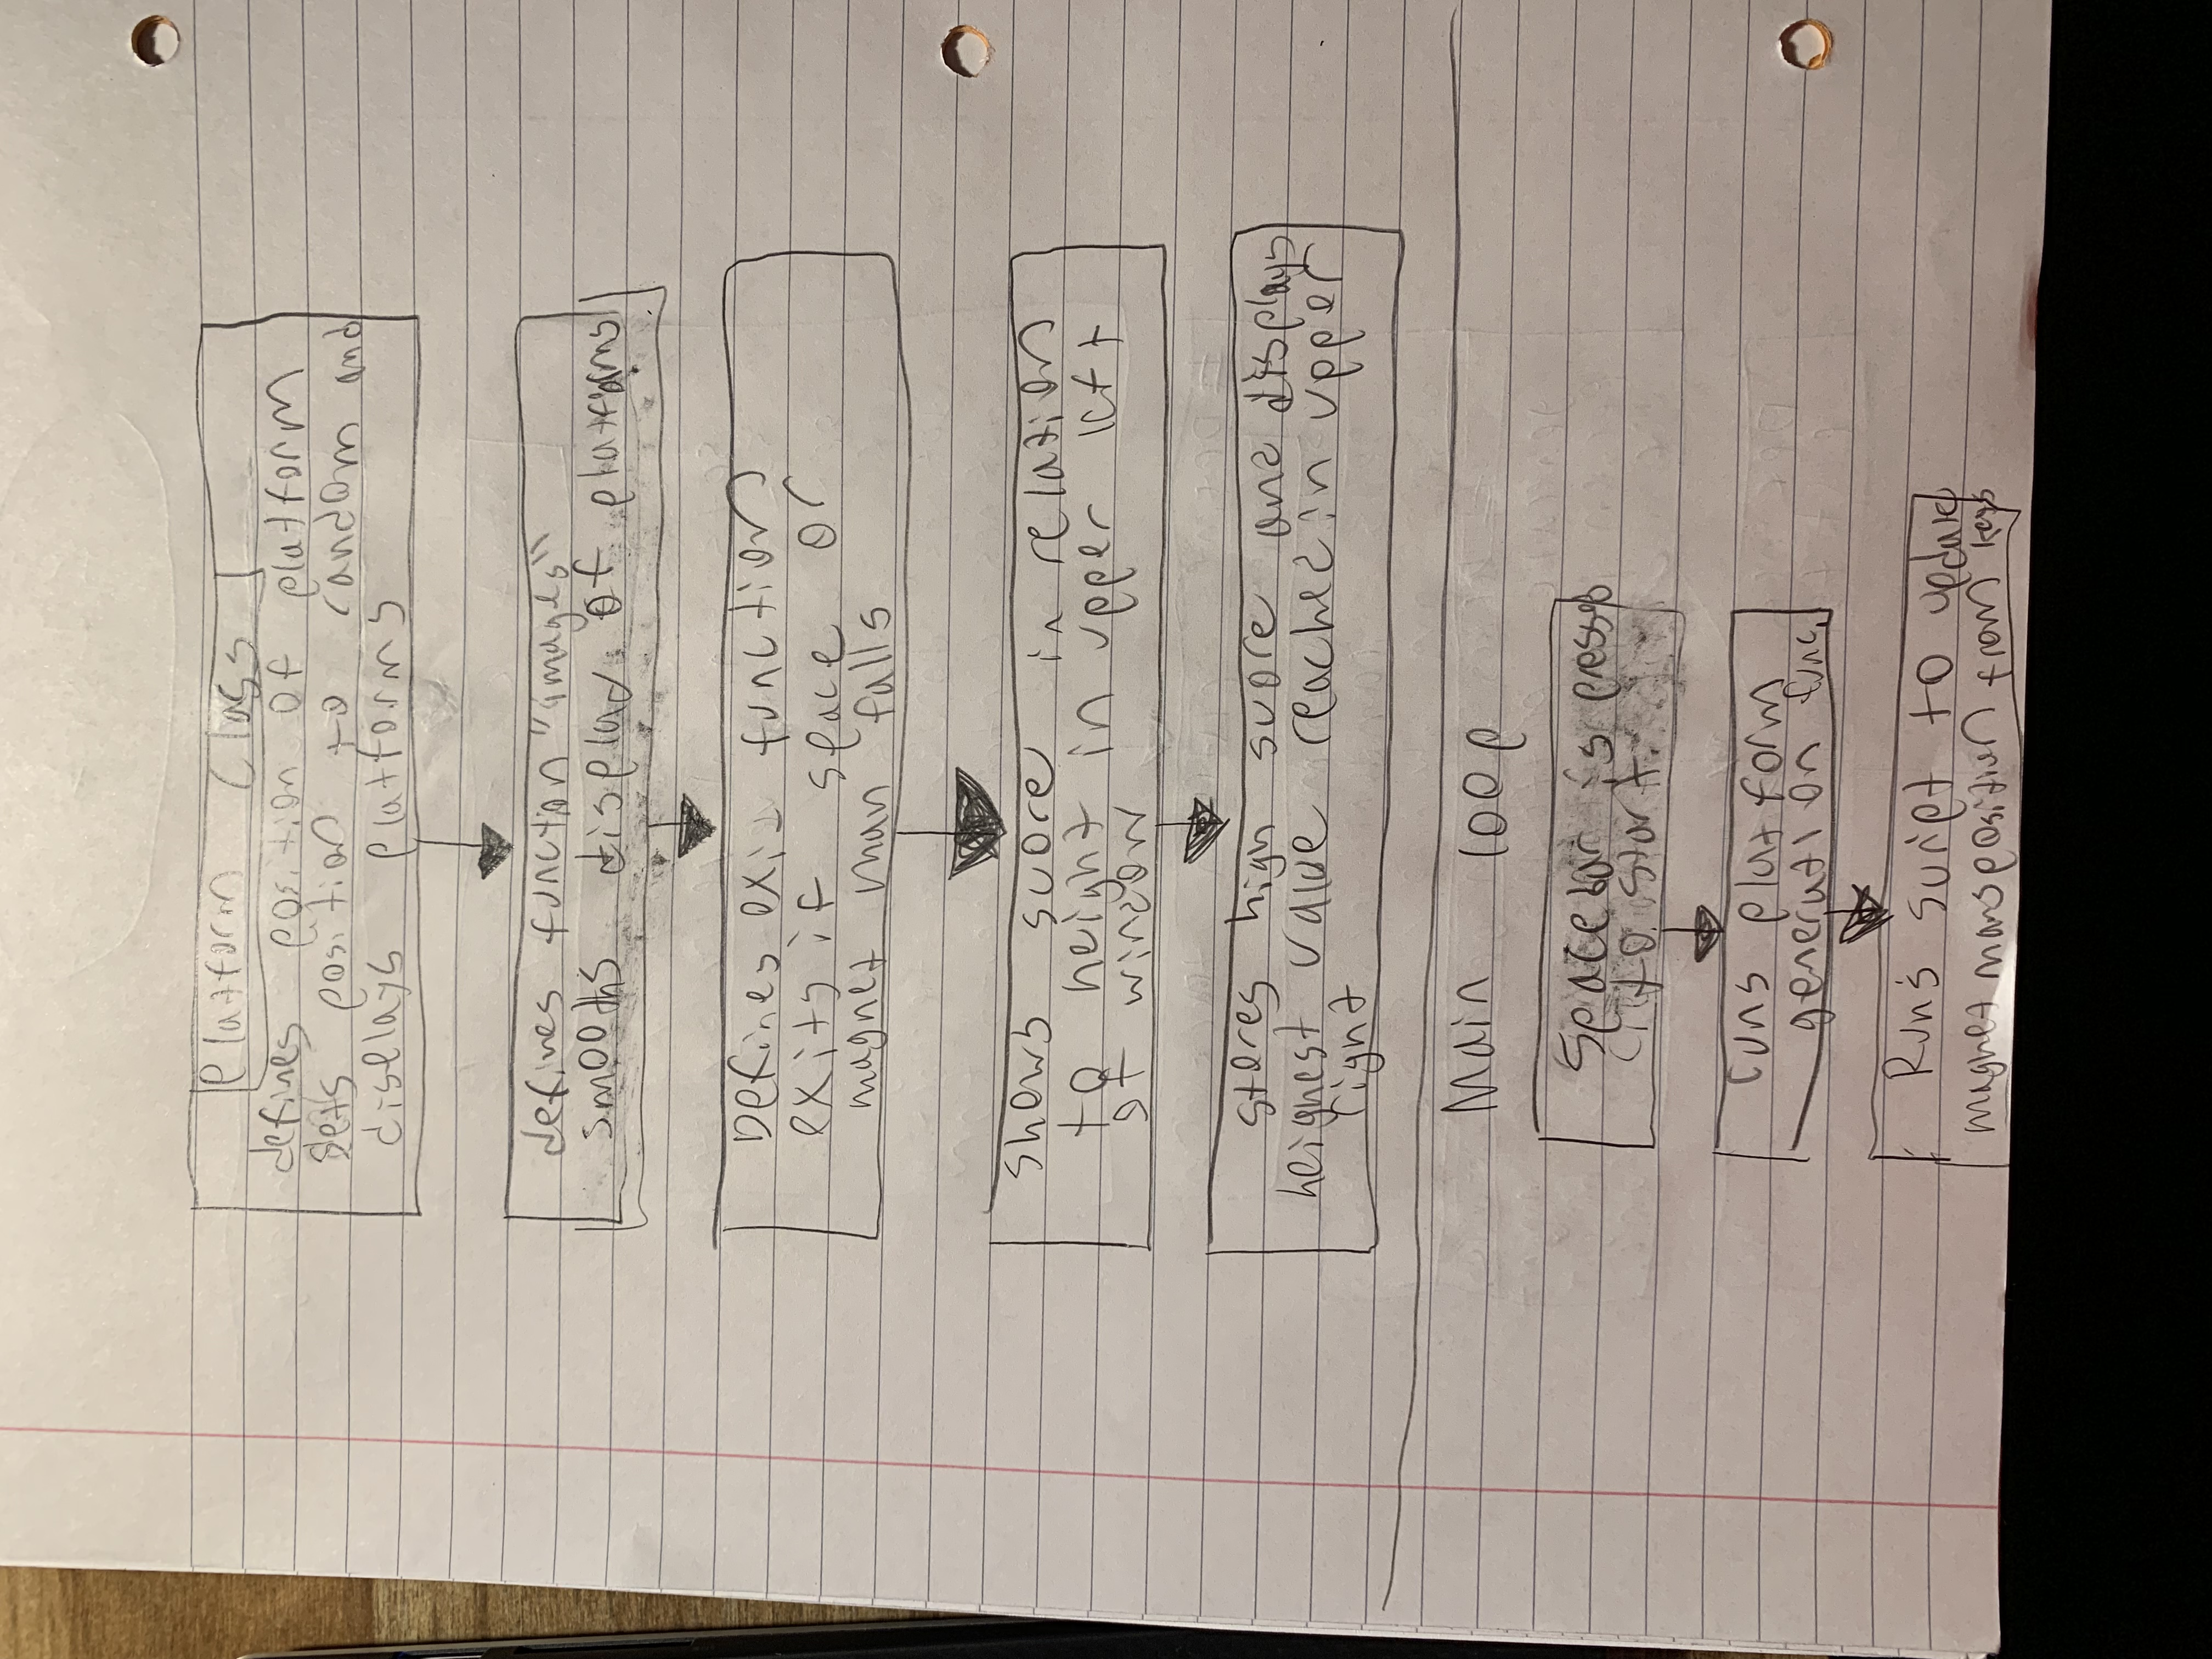 Platform Class
defines position of platform
sets position to random and
displays platforms
defines function "images"
smooths display of platforms
Defines exit function
exits if space or
magnet man falls
shows score in relation
to height in upper left
of window
stores high score and displays
heighest value reached in upper
right
Main loop
Spacebar is pressed
to start
runs platform
generation func.
Runs script to update
magnet mans position from keys